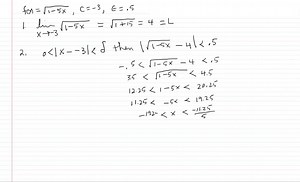 f(x) = √1-5x , C=-3, ε=.5
1. lim x→-3 √1-5x = √1+15 = 4 = L
2. 0<|x--3|<δ then |√1-5x - 4| < .5
-.5 < √1-5x - 4 < .5
3.5 < √1-5x < 4.5
12.25 < 1-5x < 20.25
11.25 < -5x < 19.25
< x < -11.25/5